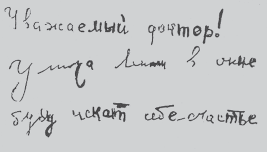 Уважаемый доктор!
в окне
буду искат себе счастье